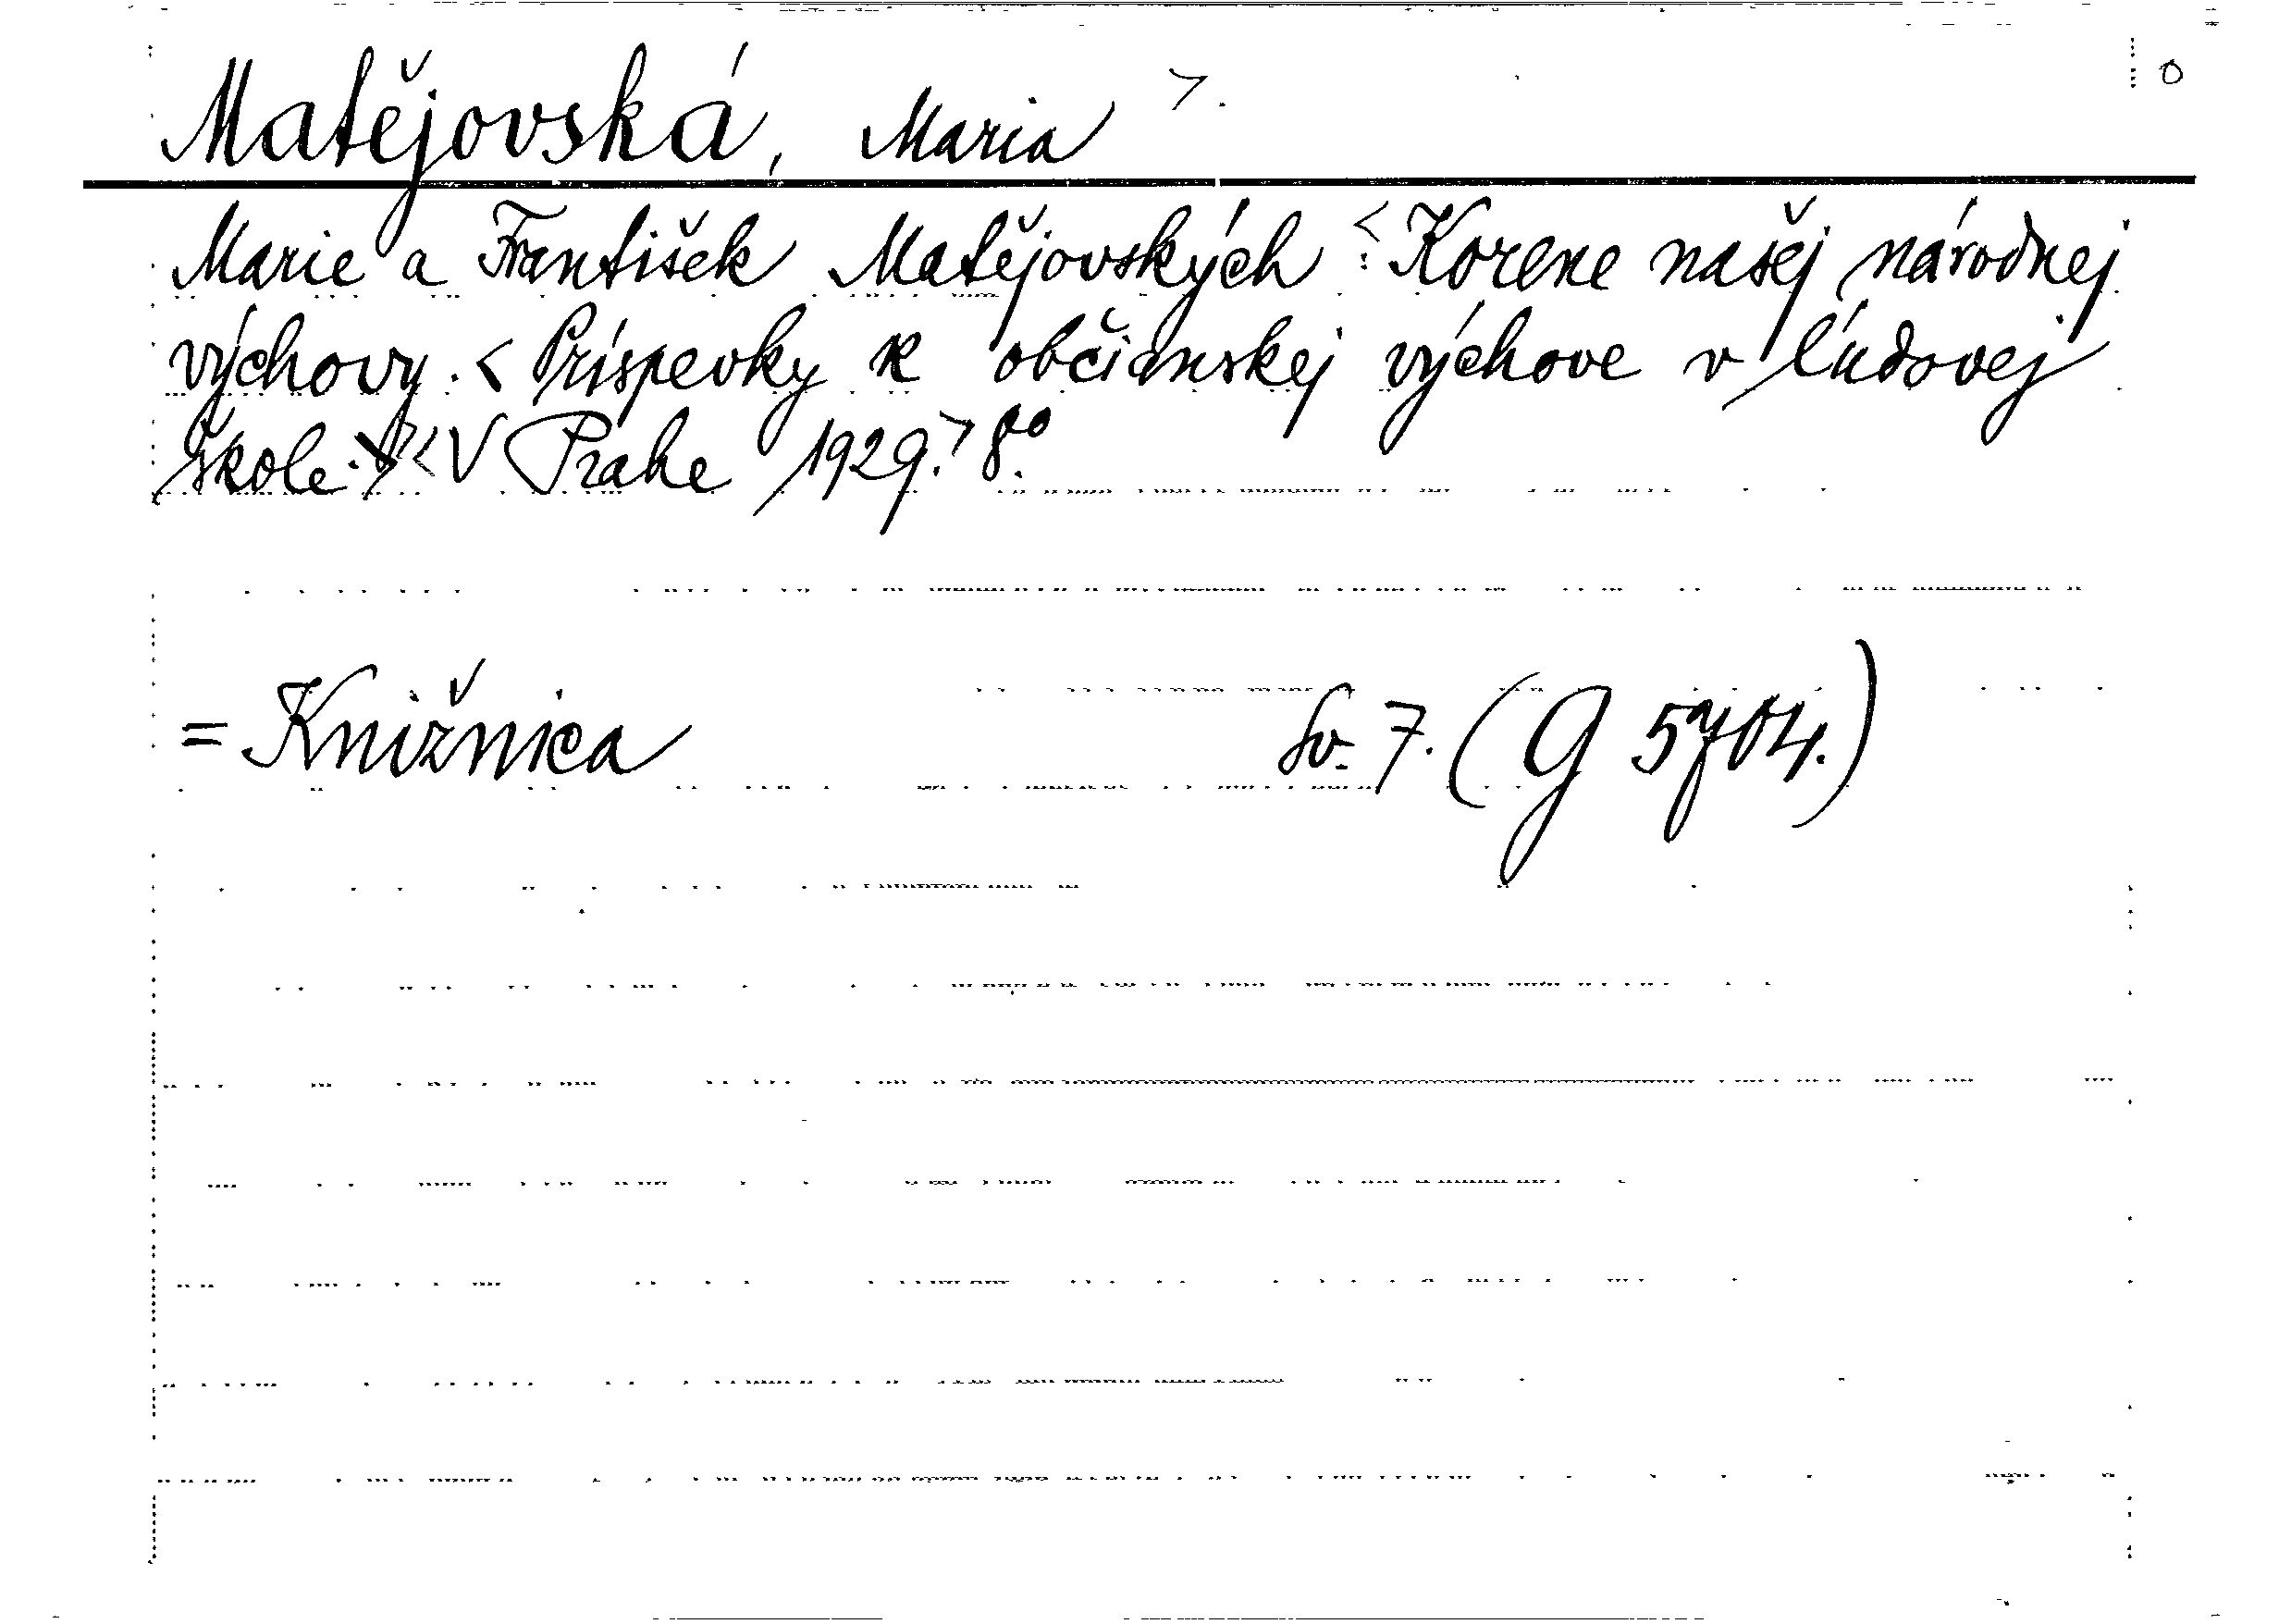 Matějovská, Maria >. o
Marie a František Matějovských <: Korene našej národnej
výchovy. < Príspevky k občianskej výchove v ľudovej
škole. >< V Prahe 1929. > 8º.
= Knižnica Sv. 7. (G